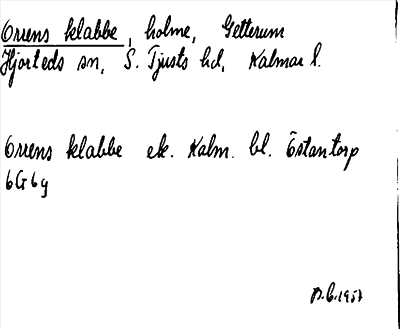 Orrens klabbe, holme, Getterum
Hjorteds sn, S. Tjusts hd, Kalmar l.
Orrens klabbe ek. Kalm. bl. Östantorp
6G6g
1957